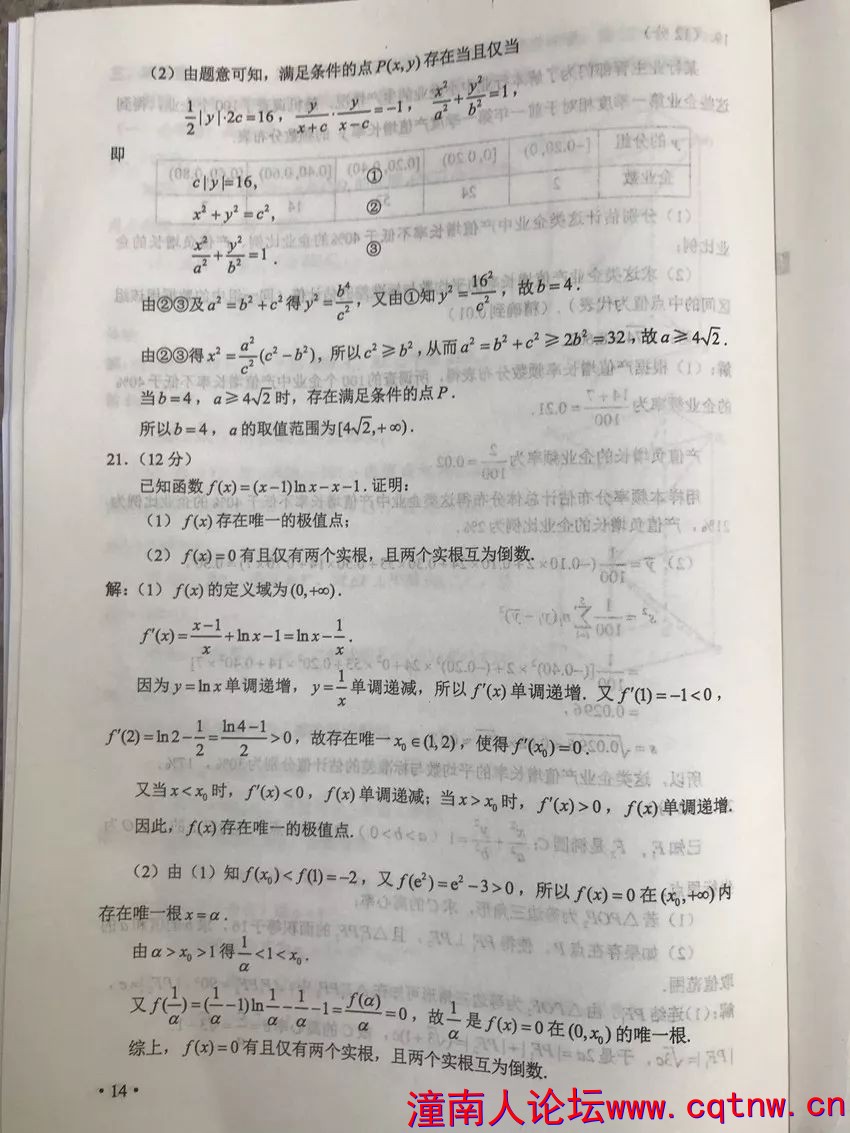 (2) 由题意可知，满足条件的点 P(x, y) 存在当且仅当
1/2 |y|·2c=16，y/(x+c)·y/(x−c)=−1，x²/a²+y²/b²=1，
即
c|y|=16, ①
x²+y²=c², ②
x²/a²+y²/b²=1. ③
由②③及 a²=b²+c² 得 y²=b⁴/c²，又由①知 y²=16²/c²，故 b=4.
由②③得 x²=a²/c²(c²−b²)，所以 c²≥b²，从而 a²=b²+c²≥2b²=32，故 a≥4√2.
当 b=4，a≥4√2 时，存在满足条件的点 P.
所以 b=4，a 的取值范围为[4√2,+∞).
21.（12 分）
已知函数 f(x)=(x−1)ln x−x−1. 证明：
(1) f(x) 存在唯一的极值点；
(2) f(x)=0 有且仅有两个实根，且两个实根互为倒数.
解：(1) f(x) 的定义域为(0,+∞).
f′(x)=(x−1)/x+ln x−1=ln x−1/x.
因为 y=ln x 单调递增，y=1/x 单调递减，所以 f′(x) 单调递增. 又 f′(1)=−1<0，
f′(2)=ln 2−1/2=(ln 4−1)/2>0，故存在唯一 x₀∈(1,2)，使得 f′(x₀)=0.
又当 x<x₀ 时，f′(x)<0，f(x) 单调递减；当 x>x₀ 时，f′(x)>0，f(x) 单调递增.
因此，f(x) 存在唯一的极值点.
(2) 由（1）知 f(x₀)<f(1)=−2，又 f(e²)=e²−3>0，所以 f(x)=0 在 (x₀,+∞) 内
存在唯一根 x=α.
由 α>x₀>1 得 1/α<1<x₀.
又 f(1/α)=(1/α−1)ln 1/α−1/α−1=f(α)/α=0，故 1/α 是 f(x)=0 在 (0,x₀) 的唯一根.
综上，f(x)=0 有且仅有两个实根，且两个实根互为倒数.
·14·
潼南人论坛www.cqtnw.cn